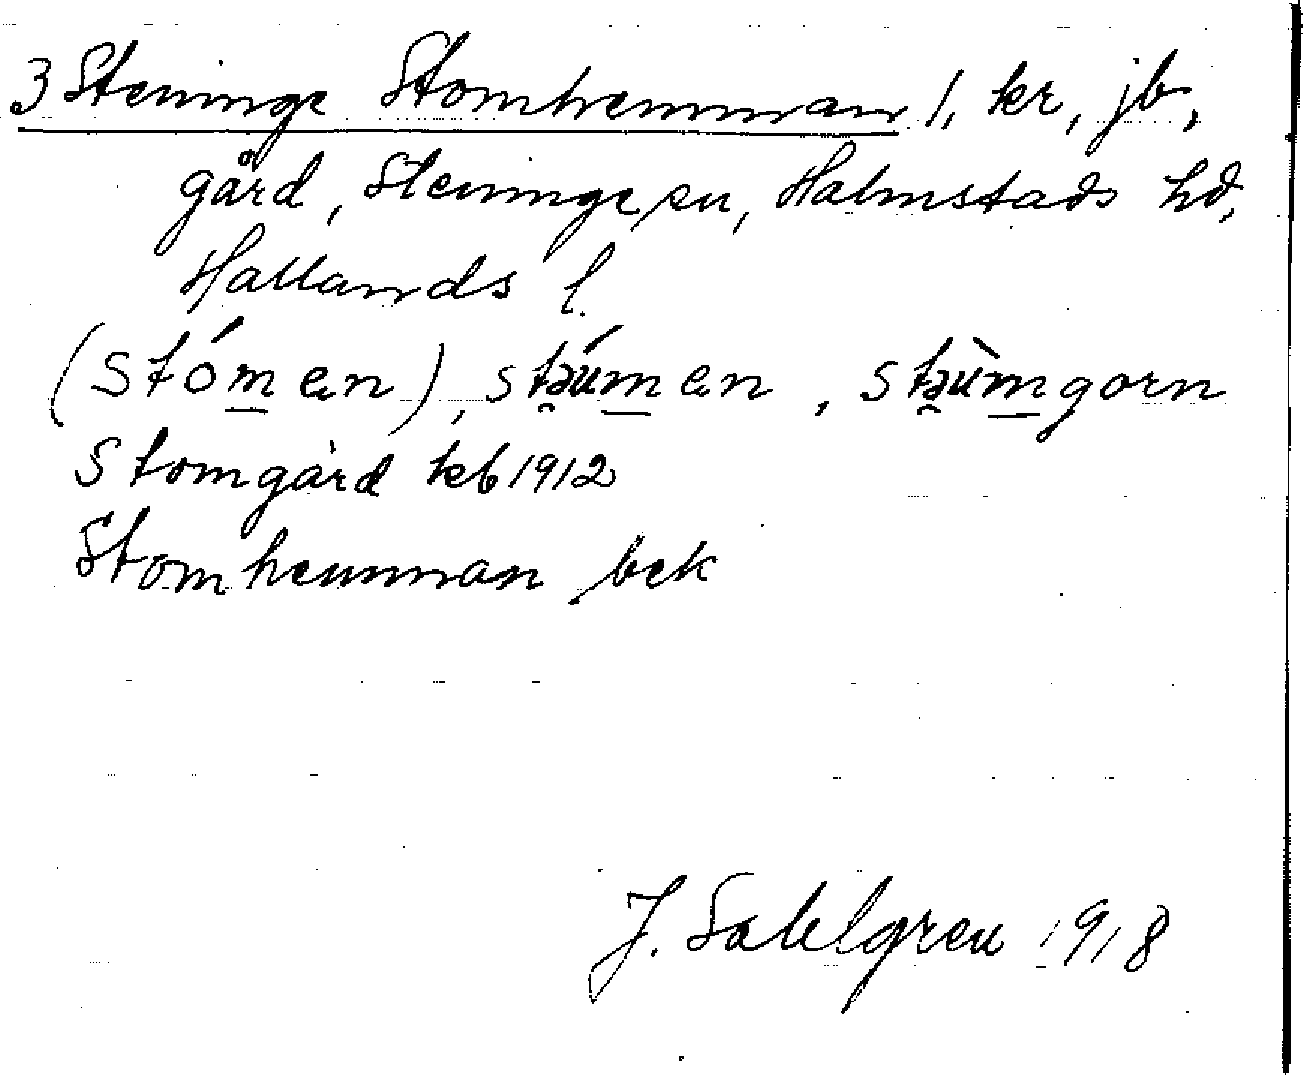 3 Steninge Stomhemman 1, kr, jb,
gård, Steninge sn, Halmstads hd,
Hallands l.
(stómen), stə̯úmen, stə̯ùmgorn
Stomgård kb 1912
Stomhemman bek
J. Sahlgren 1918